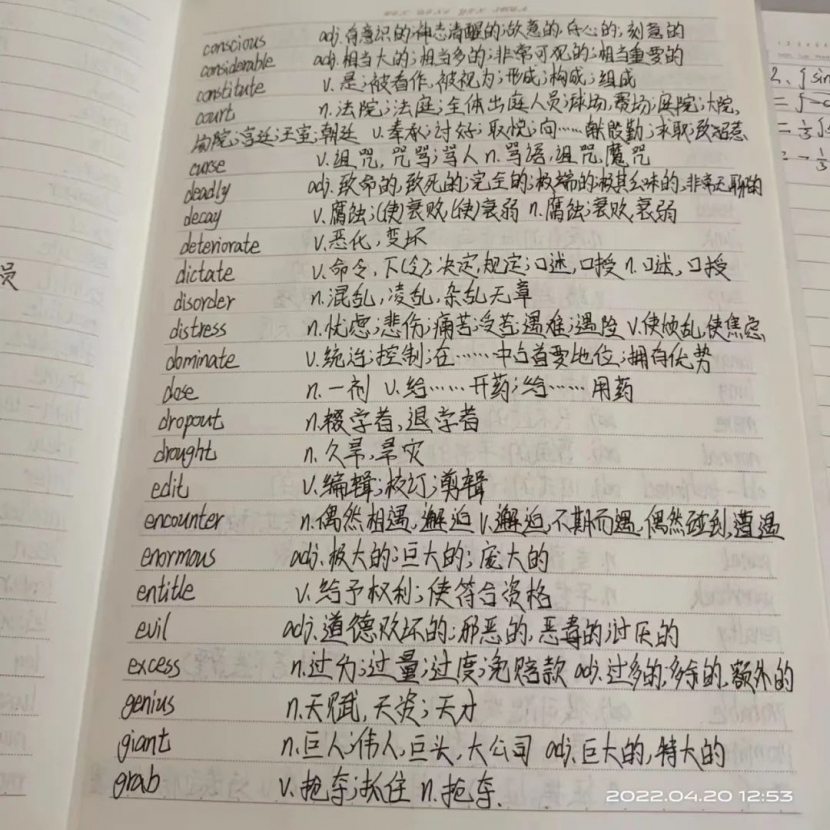 conscious adj.有意识的;神志清醒的;故意的,存心的;刻意的
considerable adj.相当大的;相当多的;非常可观的;相当重要的
constitute v.是;被看作,被视为;形成;构成;组成
court n.法院;法庭;全体出庭人员;球场,赛场;庭院;大院,
宫廷;王室;朝廷 v.奉承;讨好;取悦;向……献殷勤;求取;
curse v.诅咒,咒骂;骂人 n.骂语,诅咒,魔咒
deadly adj.致命的,致死的;完全的;极端的;极其乏味的,非常无聊的
decay v.腐蚀;(使)衰败,(使)衰弱 n.腐蚀;衰败,衰弱
deteriorate v.恶化,变坏
dictate v.命令,下(令);决定,规定;口述,口授 n.口述,口授
disorder n.混乱,凌乱,杂乱无章
distress n.忧虑;悲伤;痛苦;受苦;遇难;遇险 v.使烦乱,使焦虑
dominate v.统治;控制;在……中占首要地位;拥有优势
dose n.一剂 v.给……开药;给……用药
dropout n.辍学者,退学者
drought n.久旱,旱灾
edit v.编辑;校订;剪辑
encounter n.偶然相遇,邂逅 v.邂逅,不期而遇,偶然碰到,遭遇
enormous adj.极大的;巨大的;庞大的
entitle v.给予权利;使符合资格
evil adj.道德败坏的;邪恶的,恶毒的;讨厌的
excess n.过分;过量;过度;免赔款 adj.过多的,多余的,额外的
genius n.天赋,天资;天才
giant n.巨人;伟人,巨头,大公司 adj.巨大的,特大的
grab v.抢夺;抓住 n.抢夺.
2022.04.20 12:53
员
2、∫sin